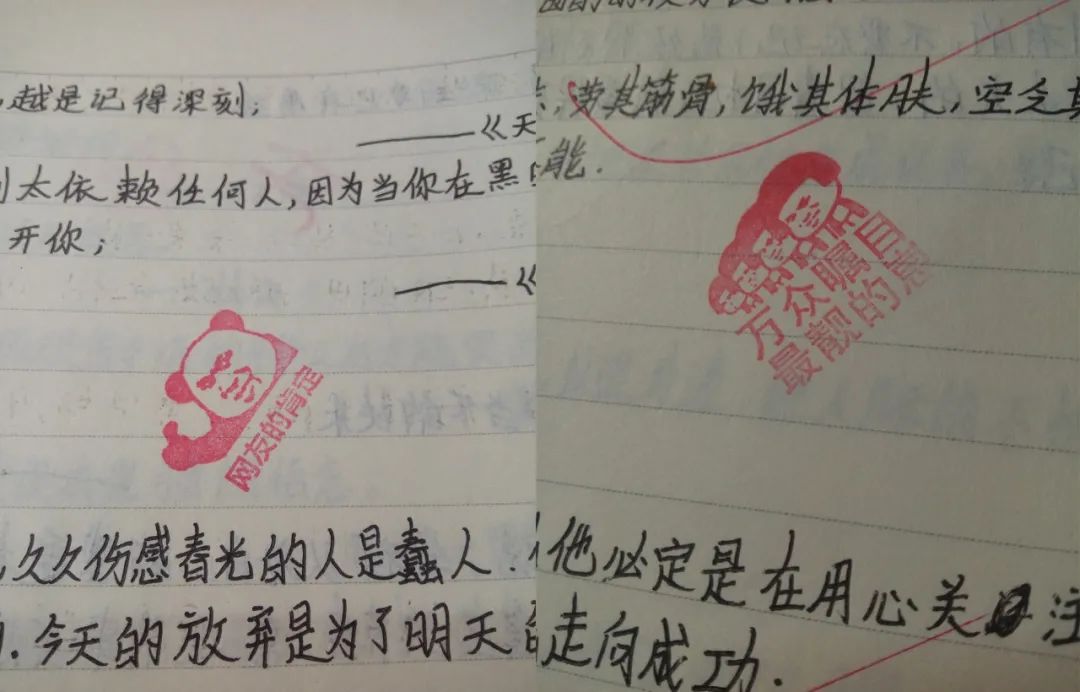 越是记得深刻；
——《天
太依赖任何人，因为当你在黑
开你；
——《
网友的肯定
久久伤感春光的人是蠢人.
.今天的放弃是为了明天
，劳其筋骨，饿其体肤，空乏其
能.
万众瞩目
最靓的
他必定是在用心关注
走向成功.